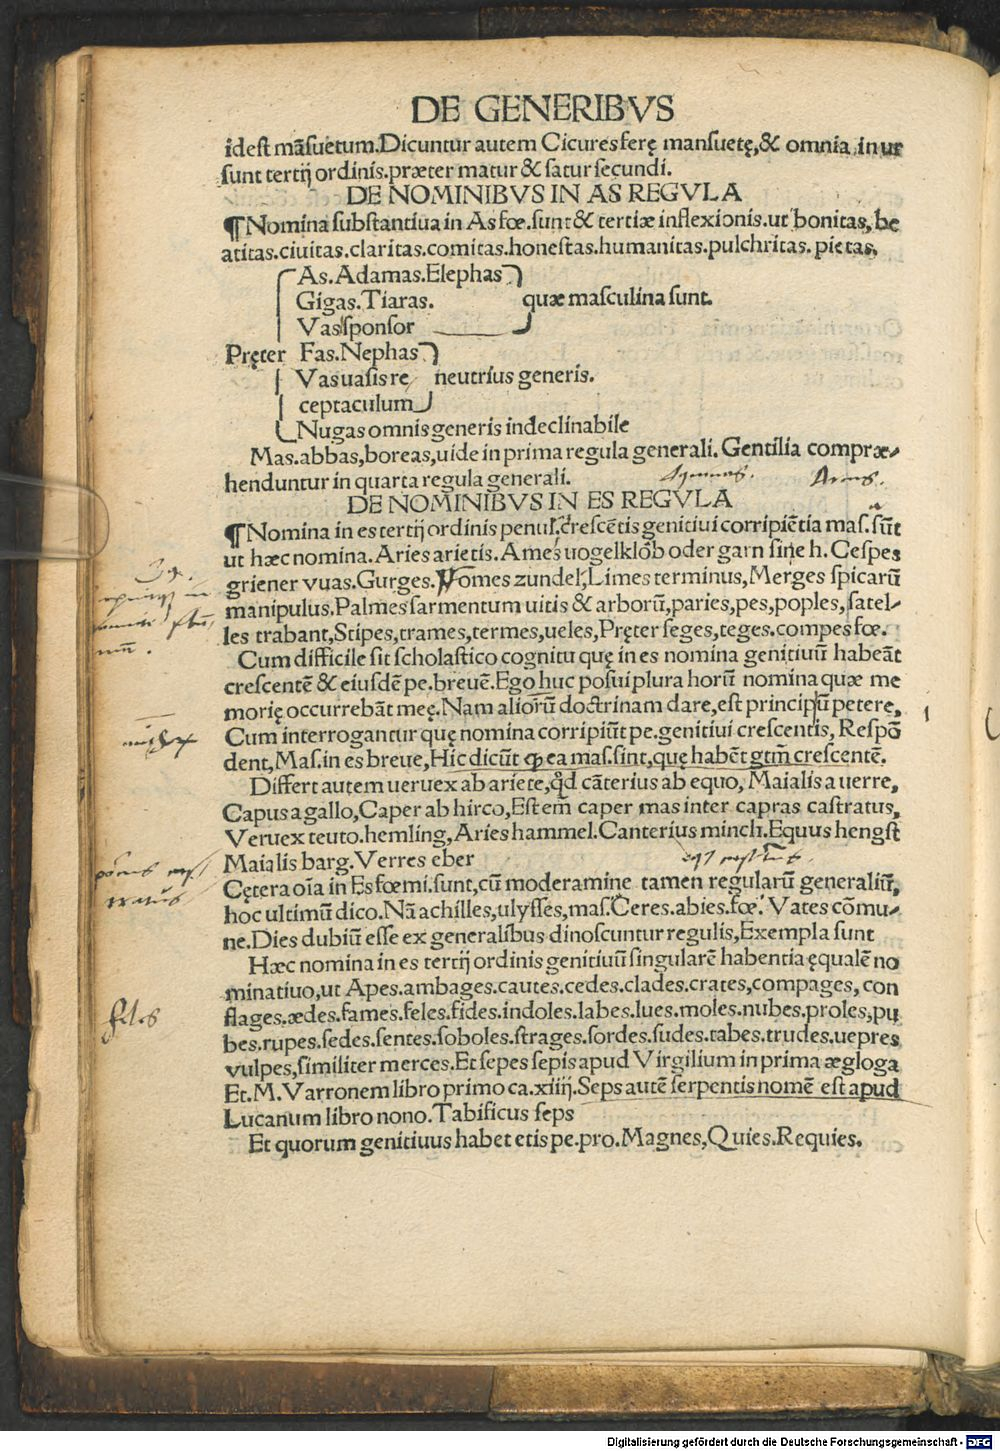 DE GENERIBVS
idest mãsuetum.Dicuntur autem Cicures ferę mansuetę,& omnia in ur
sunt tertij ordinis.præter matur & satur secundi.
DE NOMINIBVS IN AS REGVLA
¶Nomina substantiua in As fœ.sunt & tertiæ inflexionis.ut bonitas,be
atitas.ciuitas.claritas.comitas.honestas.humanitas.pulchritas.pietas.
As.Adamas.Elephas
Gigas.Tiaras. quæ masculina sunt.
Vas sponsor
Pręter Fas.Nephas
Vas uasis re neutrius generis.
ceptaculum
Nugas omnis generis indeclinabile
Mas.abbas,boreas,uide in prima regula generali.Gentilia compræ-
henduntur in quarta regula generali.
DE NOMINIBVS IN ES REGVLA
¶Nomina in es tertij ordinis penul.crescẽtis genitiui corripiẽtia mas.sũt
ut hæc nomina.Aries arietis.Ames uogelklob oder garn sine h.Cespes
griener vuas.Gurges.Fomes zundel,Limes terminus,Merges spicarũ
manipulus.Palmes sarmentum uitis & arborũ,paries,pes,poples,satel-
les trabant,Stipes,trames,termes,ueles,Pręter seges,teges.compes fœ.
Cum difficile sit scholastico cognitu quę in es nomina genitiuũ habeãt
crescentẽ & eiusdẽ pe.breuẽ.Ego huc posui plura horũ nomina quæ me
morię occurrebãt meę.Nam aliorũ doctrinam dare,est principiũ petere,
Cum interrogantur quę nomina corripiũt pe.genitiui crescentis, Respõ
dent,Mas.in es breue,Hic dicũt ꝙ ea mas.sint,quę habẽt gtm̃ crescentẽ.
Differt autem ueruex ab ariete,qd̃ cãterius ab equo, Maialis a uerre,
Capus a gallo,Caper ab hirco,Est em̃ caper mas inter capras castratus,
Veruex teuto.hemling,Aries hammel.Canterius minch.Equus hengst
Maialis barg.Verres eber
Cętera oĩa in Es fœmi.sunt,cũ moderamine tamen regularũ generaliũ,
hoc ultimũ dico.Nã achilles,ulysses,mas.Ceres.abies.fœ.Vates cõmu-
ne.Dies dubiũ esse ex generalibus dinoscuntur regulis,Exempla sunt
Hæc nomina in es tertij ordinis genitiuũ singularẽ habentia ęqualẽ no
minatiuo,ut Apes.ambages.cautes.cedes.clades.crates,compages,con
flages.ædes.fames.feles.fides.indoles.labes.lues.moles.nubes.proles,pu
bes.rupes.sedes.sentes.soboles.strages.sordes.sudes.tabes.trudes.uepres
vulpes,similiter merces.Et sepes sepis apud Virgilium in prima ægloga
Et.M.Varronem libro primo ca.xiiij.Seps autẽ serpentis nomẽ est apud
Lucanum libro nono.Tabificus seps
Et quorum genitiuus habet etis pe.pro.Magnes,Quies.Requies.
feles
Digitalisierung gefördert durch die Deutsche Forschungsgemeinschaft - DFG